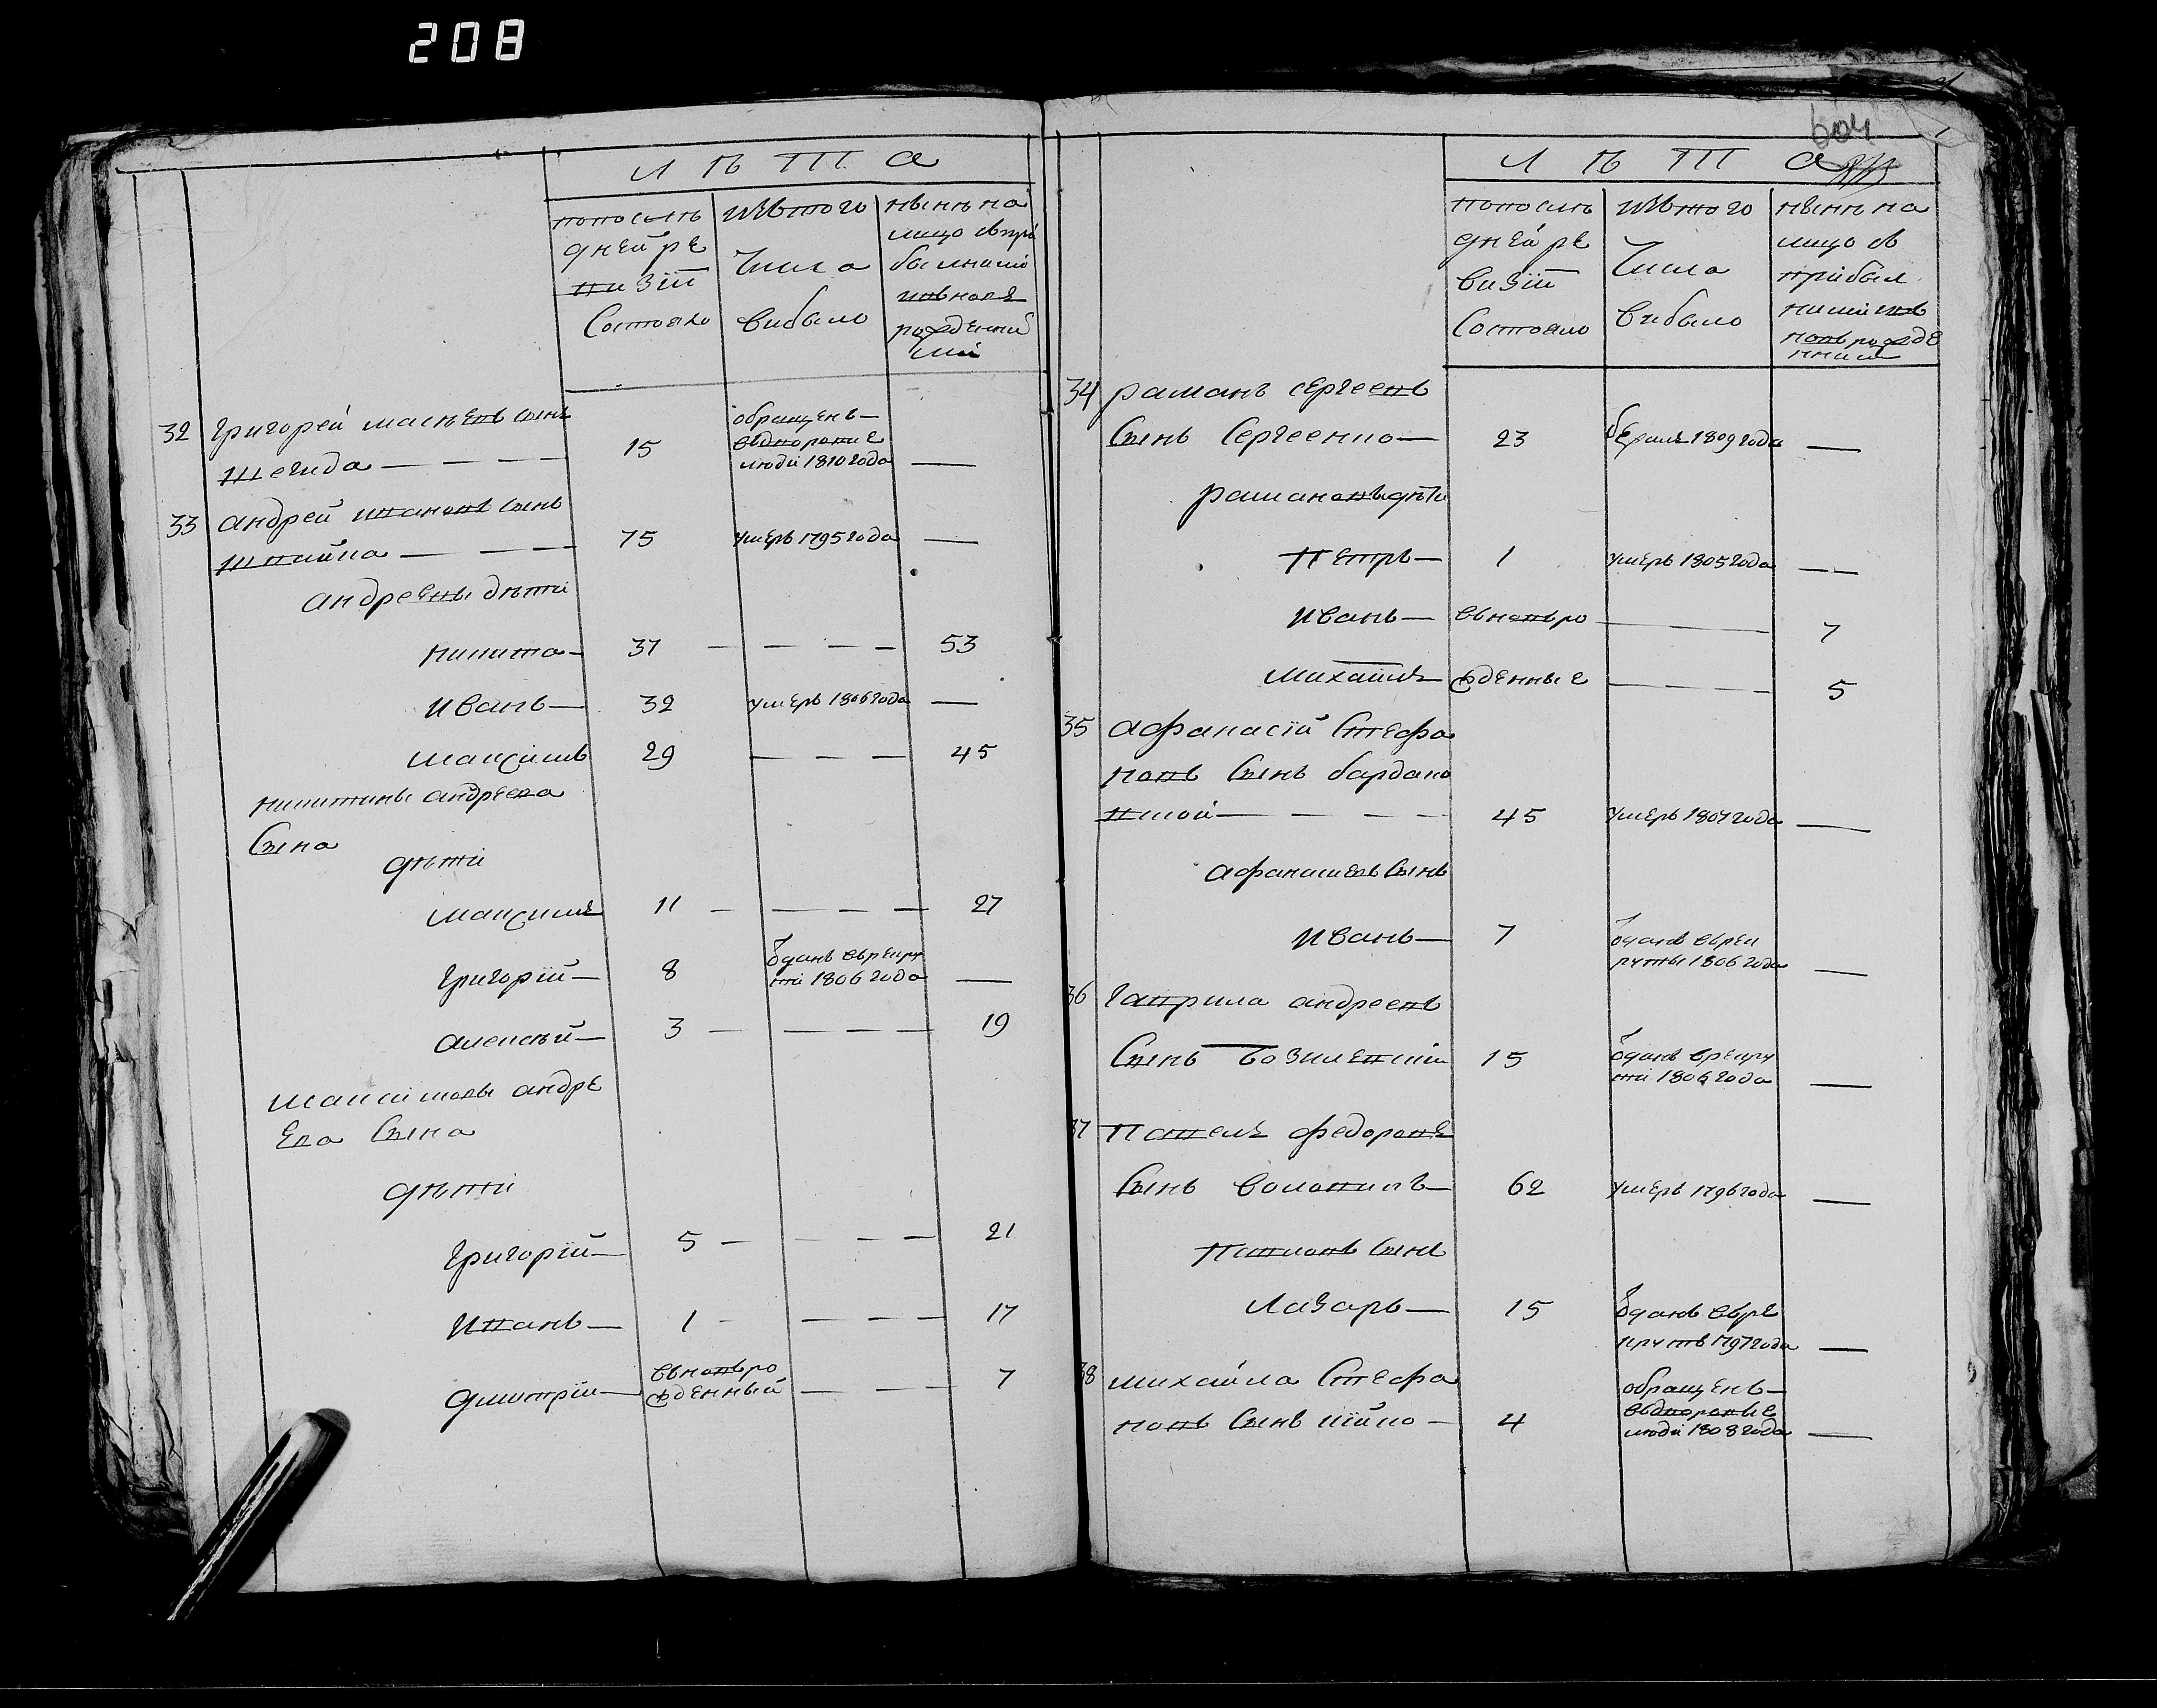 208
ЛѢТА
попослѣ
дней ре
визіи
Состояло
изътого
Числа
выбыло
нынѣ на
лицо съпри
былими
ивновь
рожденни
ми
32 григорей
15
обращенъ
въдворовые
люди 1810 года —
33 андрей ивановъ сынъ
шпийка — — —
75
умеръ 1795 года —
андреевы дѣти
никита — 37 — — — — 53
иванъ — 32 умеръ 1806 года —
максимъ 29 — — — 45
никитины андреева
Сына
дѣти
максимъ 11 — — — — 27
григорій — 8
Отданъ врекру
ты 1806 года —
алексѣй — 3 — — — — 19
максимовы андре
ева Сына
дѣти
григорій — 5 — — — — 21
Иванъ — 1 — — — — 17
дмитрій —
вновьро
жденный — — — 7
604
ЛѢТА
попослѣ
дней ре
визіи
Состояло
изътого
Числа
выбыло
нынѣ на
лицо съ
прибыл
ними ив
новьрожде
нними
34 романъ сергеевъ
Сынъ Сергеенко — 23 бежалъ 1809 года —
романовыдѣти
Петръ — 1 умеръ 1805 года — —
Иванъ — вновьро — — — 7
михаилъ жденные — — — — 5
35 афанасій Стефа
новъ Сынъ бардако
вской — — — — 45 умеръ 1807 года —
афанасиевъ Сынъ
Иванъ — 7
Отданъ врек
руты 1806 года —
36 гаврила андреевъ
Сынъ 15
Отданъ врекру
ты 1806 года —
37 Павелъ федоровъ
Сынъ 62 умеръ 1796 года —
Павловъ Сынъ
Лазарь — 15
Отданъ вре
крутъ 1797 года —
38 михайла Стефа
новъ Сынъ — 4
обращенъ —
въдворовые
люди 1808 года —